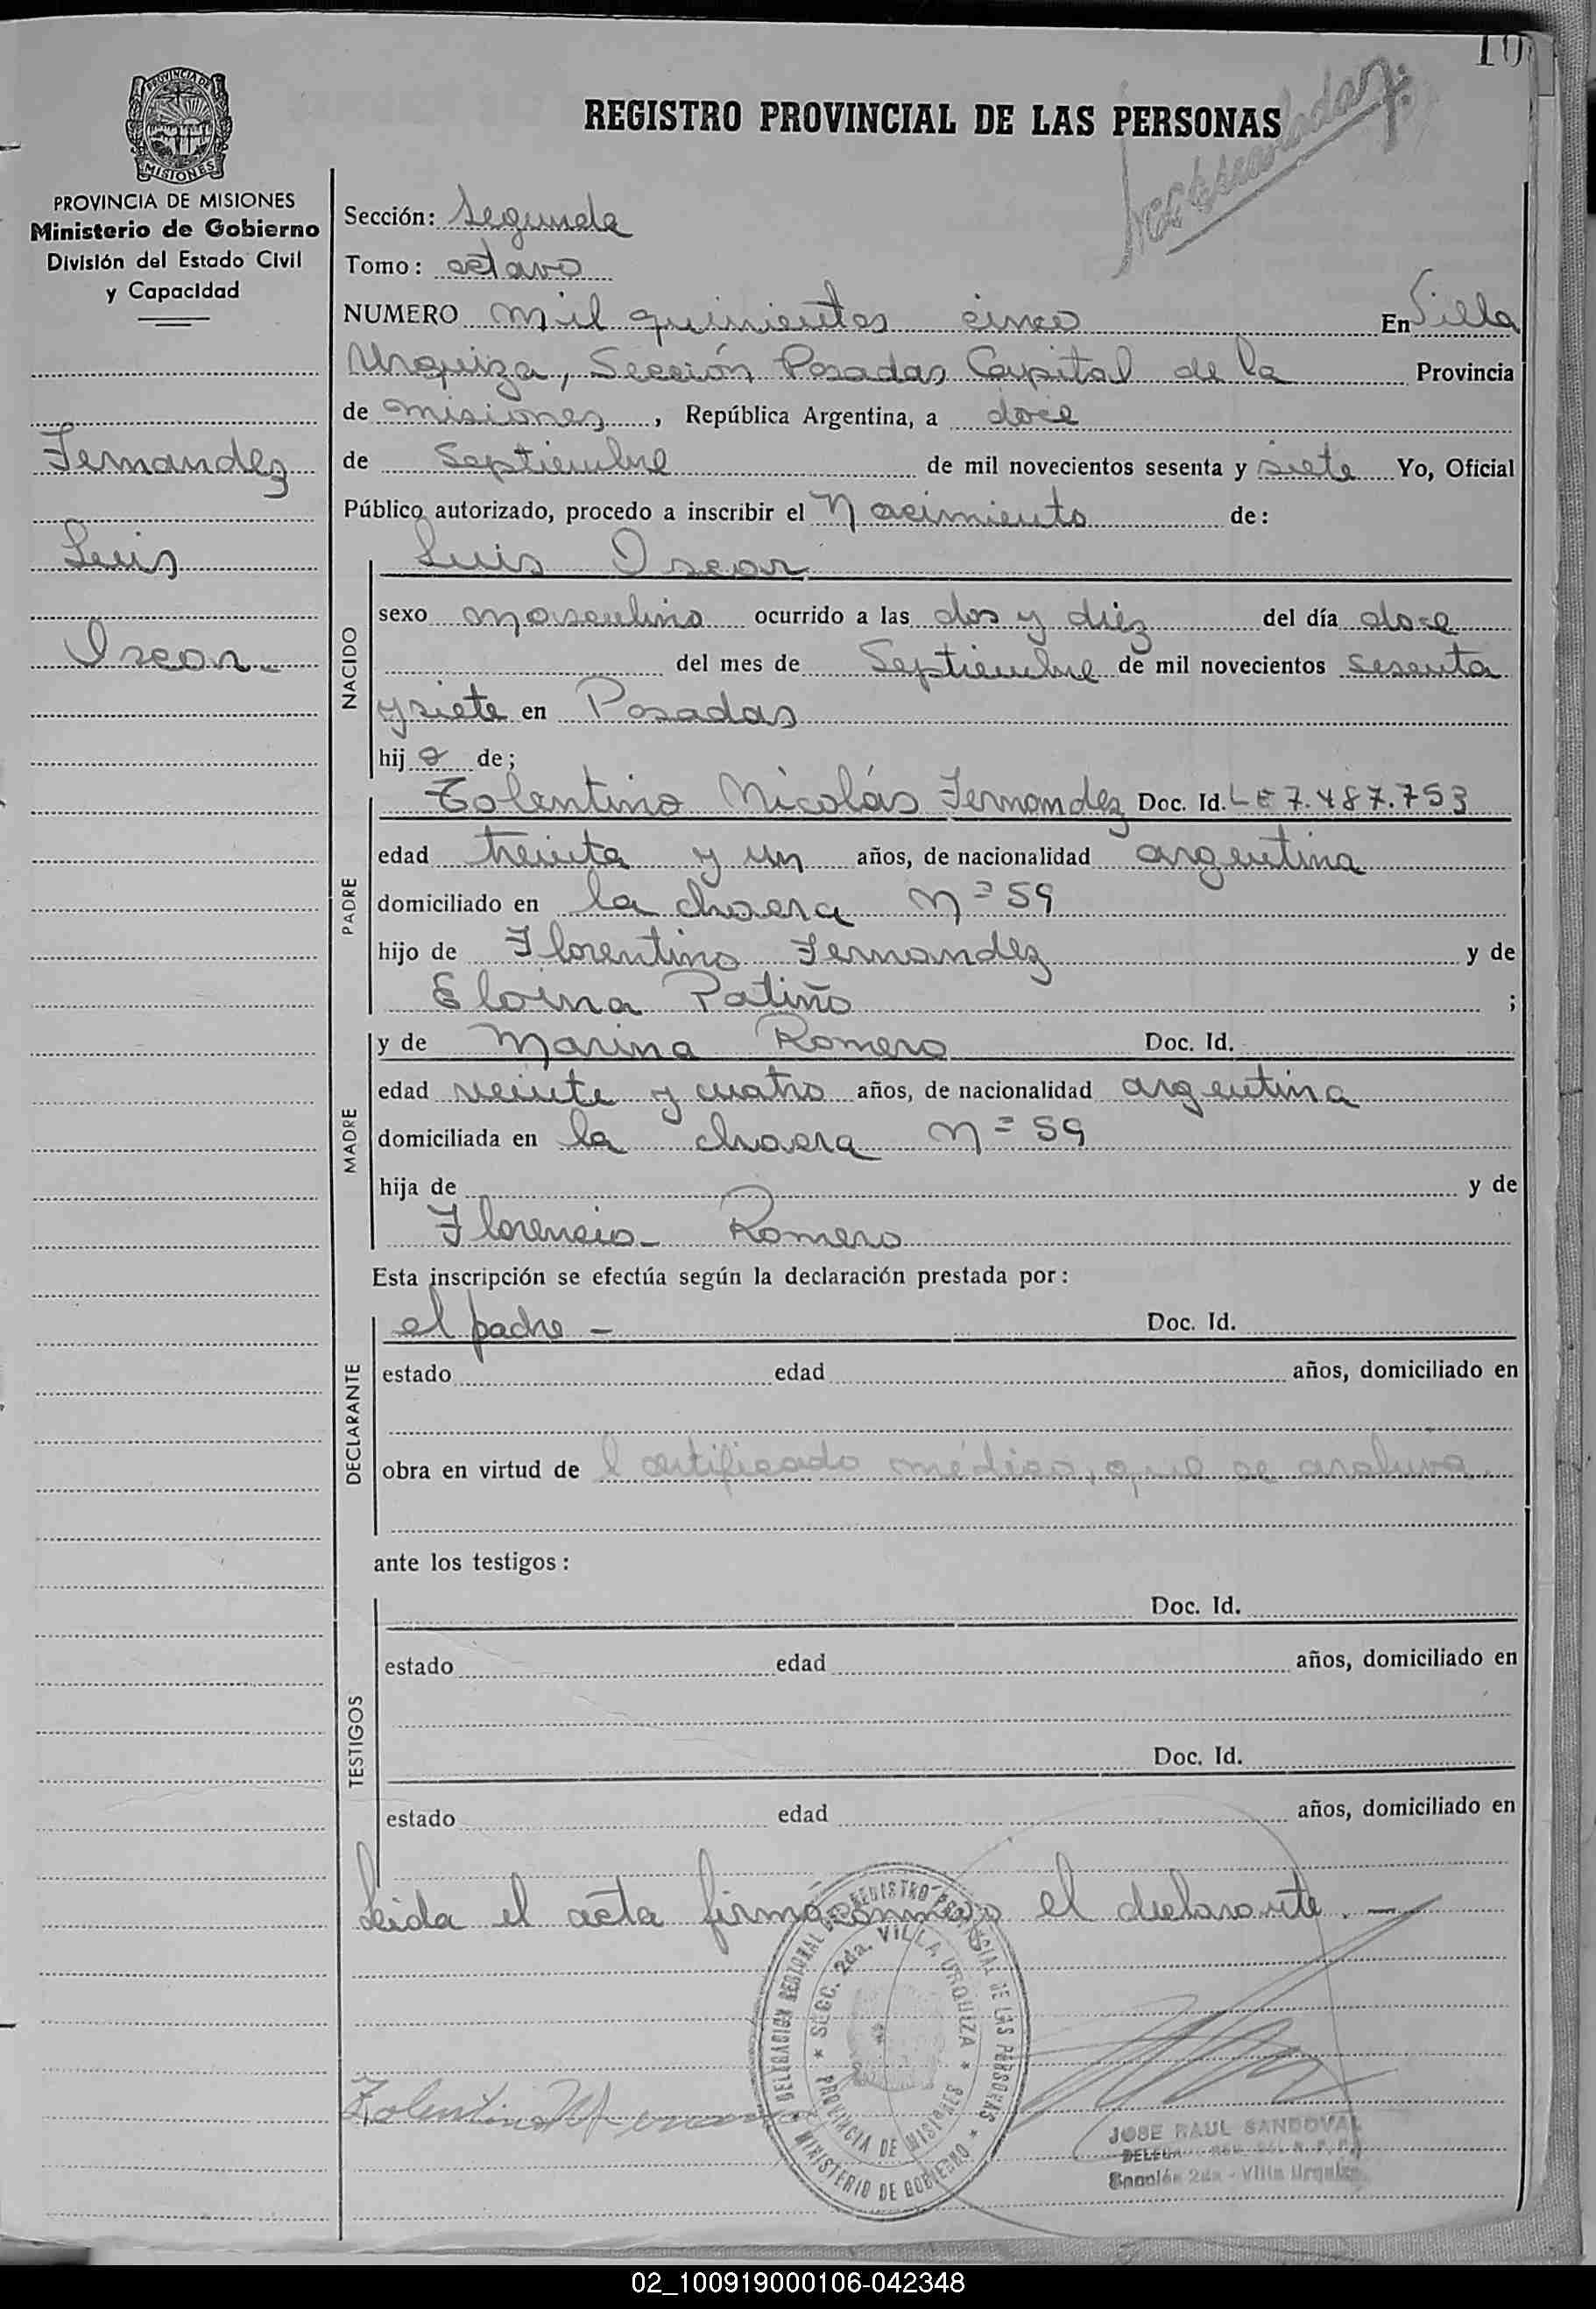 10
REGISTRO PROVINCIAL DE LAS PERSONAS
PROVINCIA DE MISIONES
MISIONES
PROVINCIA DE MISIONES
Ministerio de Gobierno
División del Estado Civil
y Capacidad
Fernandez
Luis
Oscar -
Sección: Segunda
Tomo: octavo
NUMERO mil quinientos cinco En Villa
Urquiza, Sección Posadas Capital de la Provincia
de misiones, República Argentina, a doce
de Septiembre de mil novecientos sesenta y siete Yo, Oficial
Público autorizado, procedo a inscribir el Nacimiento de:
NACIDO
Luis Oscar
sexo masculino ocurrido a las dos y diéz del día doce
del mes de Septiembre de mil novecientos sesenta
y siete en Posadas
hij o de;
PADRE
Tolentino Nicolás Fernandez Doc. Id. LE 7.487.753
edad treinta y un años, de nacionalidad argentina
domiciliado en la chacra Nº 59
hijo de Florentino Fernandez y de
Eloina Patiño ;
MADRE
y de Marina Romero Doc. Id.
edad veinte y cuatro años, de nacionalidad argentina
domiciliada en la chacra Nº 59
hija de y de
Florencia - Romero
Esta inscripción se efectúa según la declaración prestada por:
DECLARANTE
el padre - Doc. Id.
estado edad años, domiciliado en
obra en virtud de l certificado médico, que se archiva
ante los testigos:
TESTIGOS
Doc. Id.
estado edad años, domiciliado en
Doc. Id.
estado edad años, domiciliado en
Leida el acta firma conmigo el declarante. -
DELEGACION REGIONAL DEL REGISTRO PROVINCIAL DE LAS PERSONAS
SECC. 2da. VILLA URQUIZA
PROVINCIA DE MISIONES
MINISTERIO DE GOBIERNO
Tolentino N
JOSE RAUL SANDOVAL
Sección 2da - Villa Urquiza
02_100919000106-042348